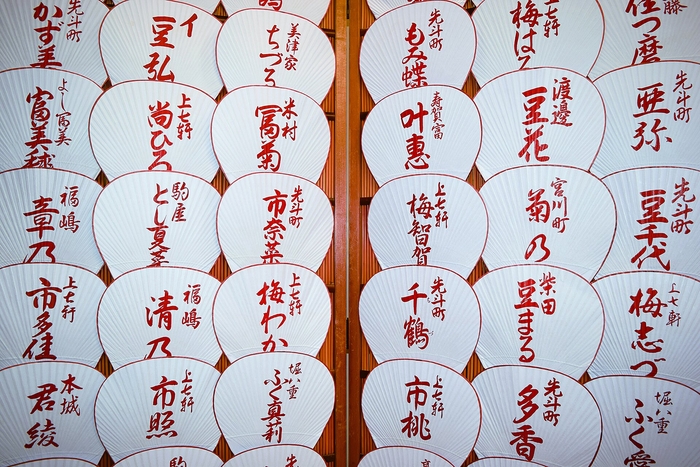 かず美
イ
豆弘
美津家
ちづる
先斗町
もみ蝶
梅はる
佳つ磨
よし冨美
富美珠
上七軒
尚ひろ
米村
冨菊
寿賀富
叶惠
渡邊
豆花
先斗町
亜弥
福嶋
章乃
駒屋
とし夏
先斗町
市奈菜
上七軒
梅智賀
宮川町
菊乃
先斗町
豆千代
上七軒
市多佳
福嶋
清乃
上七軒
梅わか
先斗町
千鶴
柴田
豆まる
上七軒
梅志づ
本城
君綾
上七軒
市照
堀八重
ふく真莉
上七軒
市桃
先斗町
多香
堀八重
ふく愛